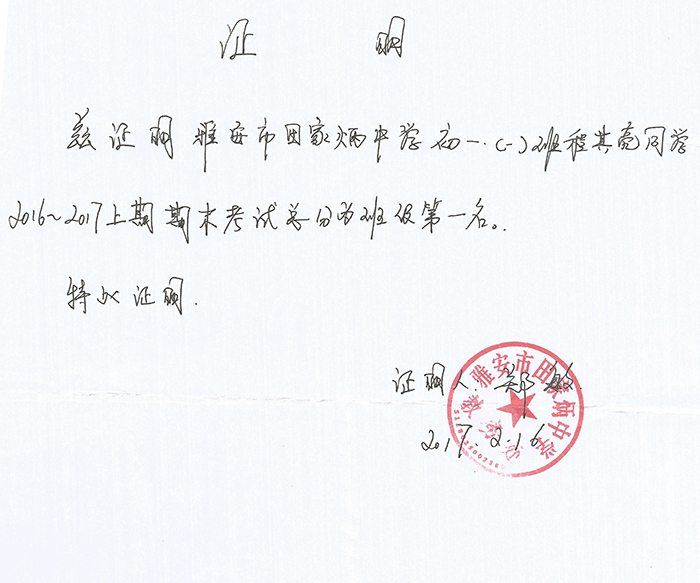 证 明
兹证明雅安市田家炳中学初一.(一)班程其亮同学
2016～2017上期期末考试总分为班级第一名。
特此证明.
证明人:郑敏.
2017.2.16
雅安市田家炳中学
教务处